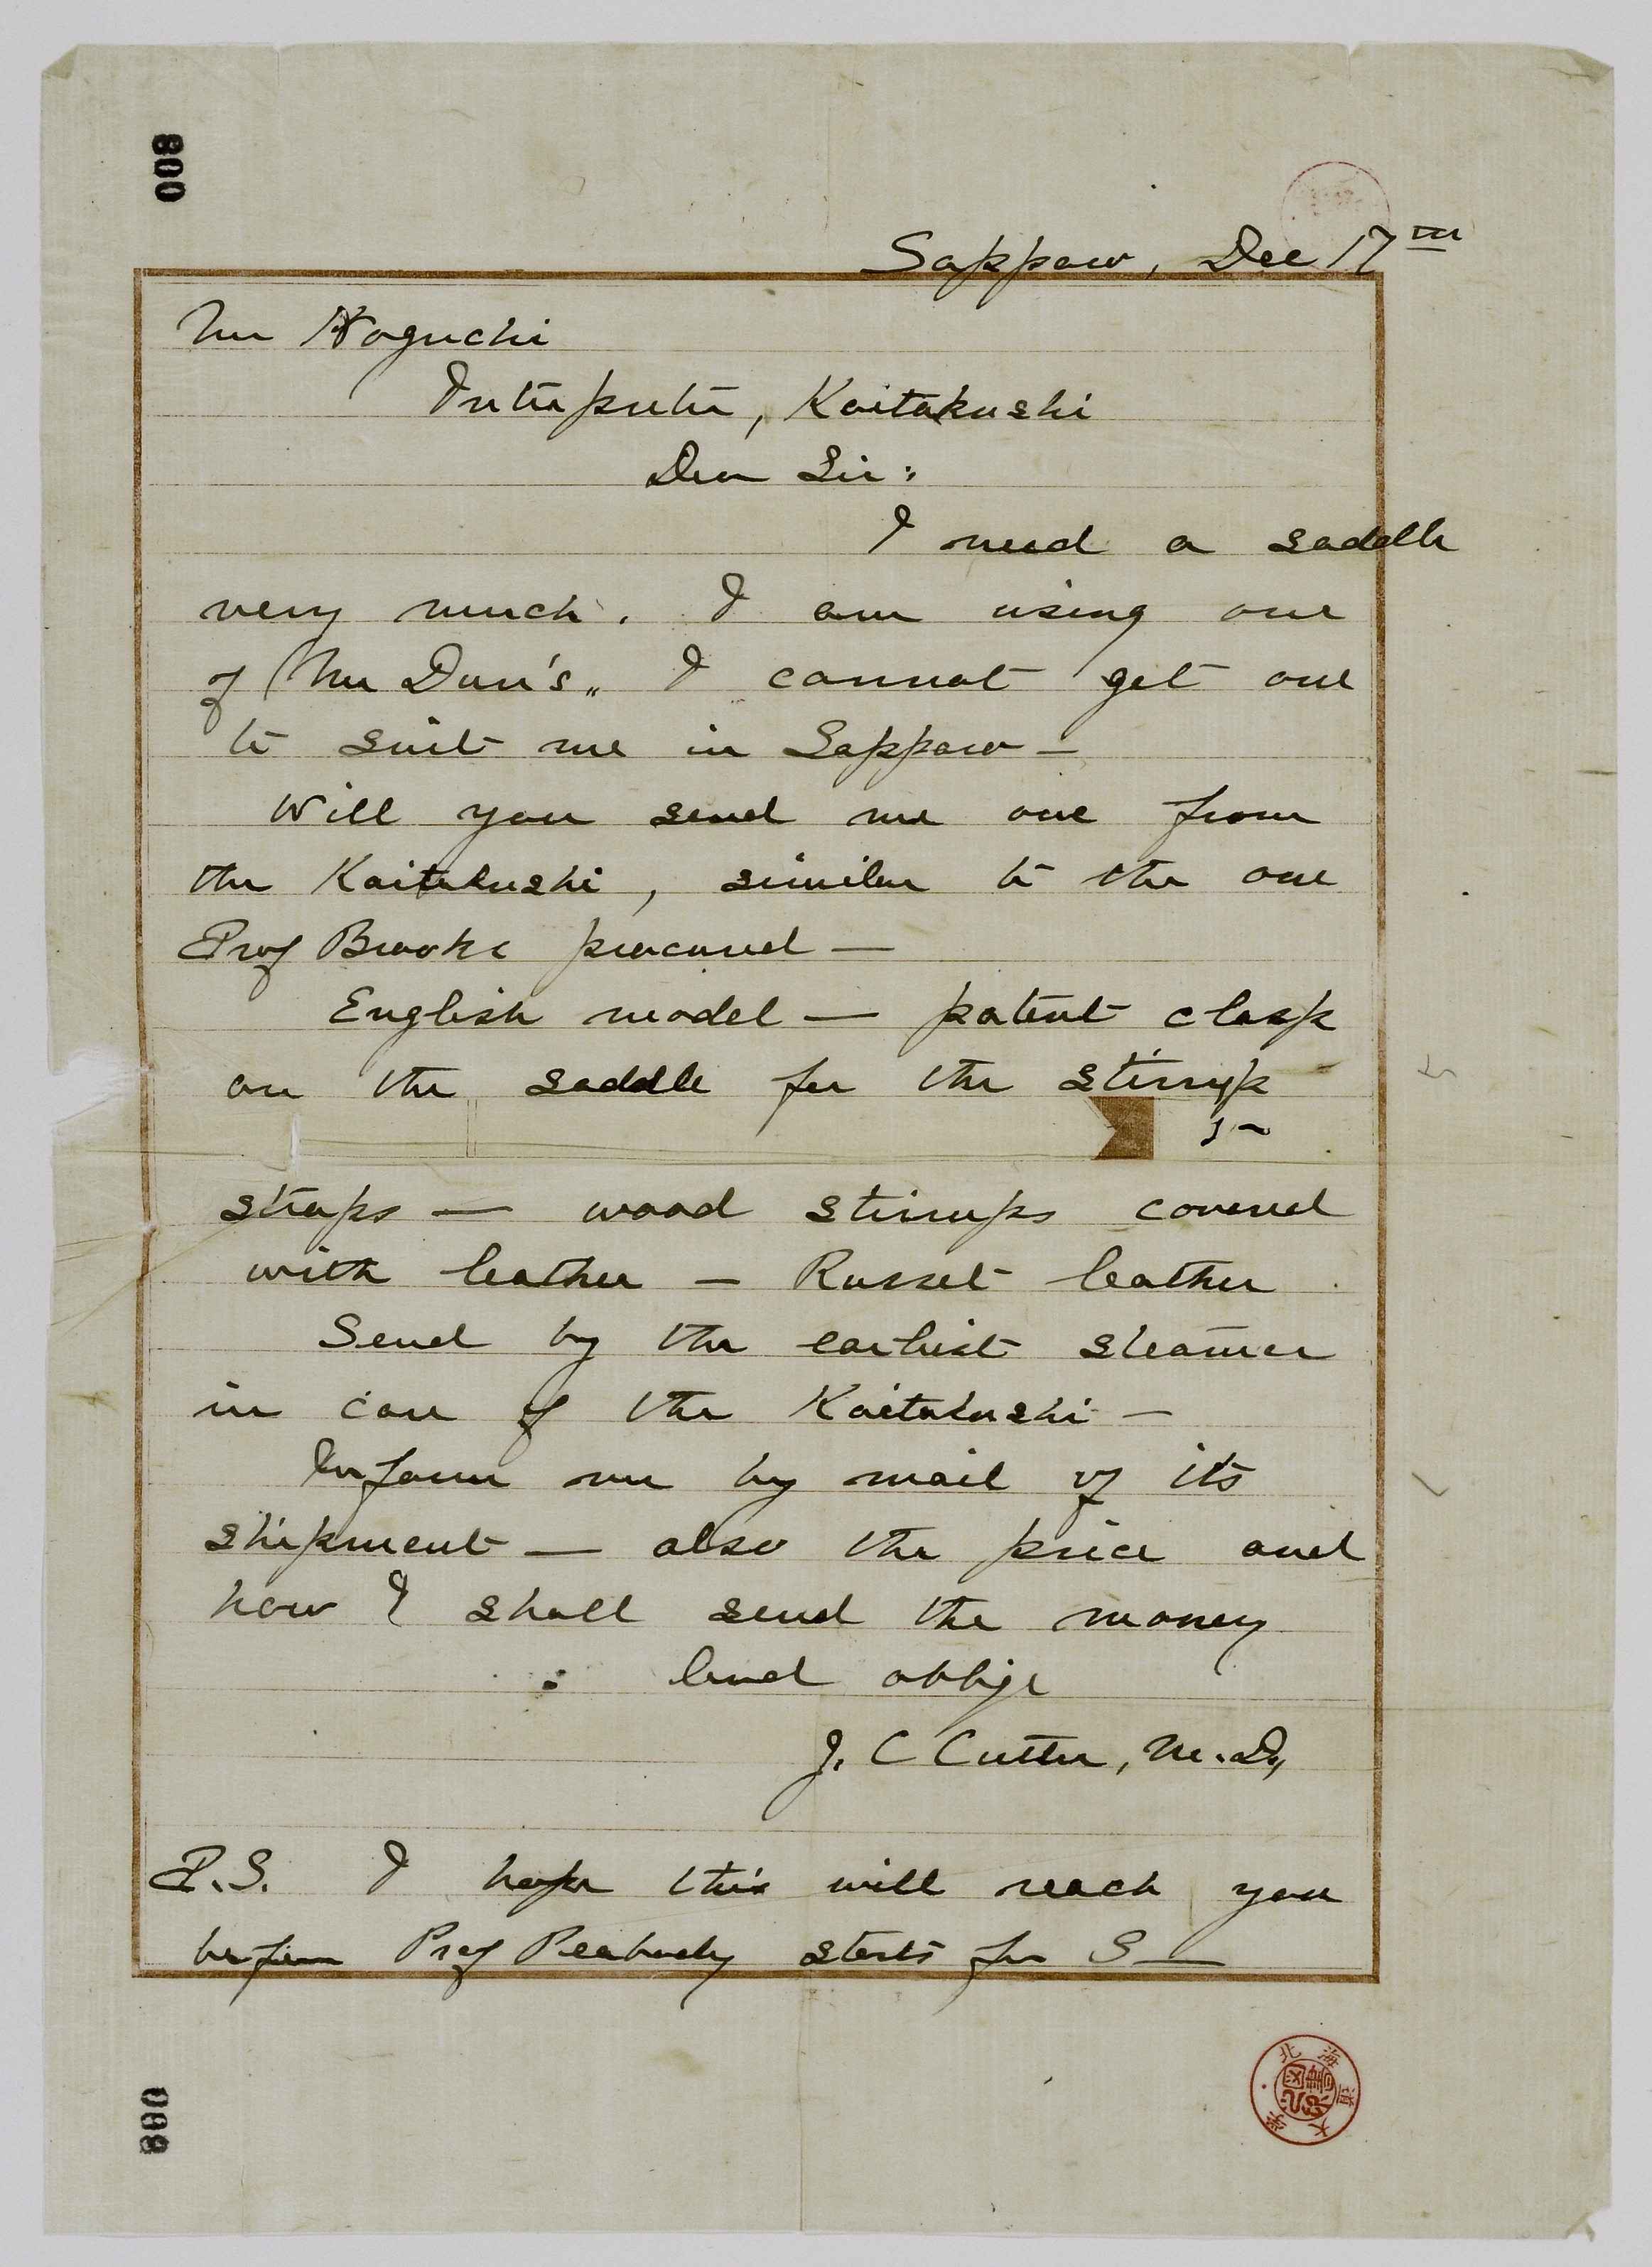 008
Sapporo, Dec 17th
Mr Noguchi
Interpreter, Kaitakushi
Dear Sir:
I need a saddle
very much. I am using one
of Mr Dun's. I cannot get one
to suit me in Sapporo —
Will you send me one from
the Kaitakushi, similar to the one
Prof Brooks procured —
English model — patent clasp
on the saddle for the stirrup
straps — wood stirrups covered
with leather — Russet leather
Send by the earliest steamer
in care of the Kaitakushi —
Inform me by mail of its
shipment — also the price and
how I shall send the money
and oblige
J. C Cutter, M.D.,
P.S. I hope this will reach you
before Prof Peabody starts for S—
088
北海道大學